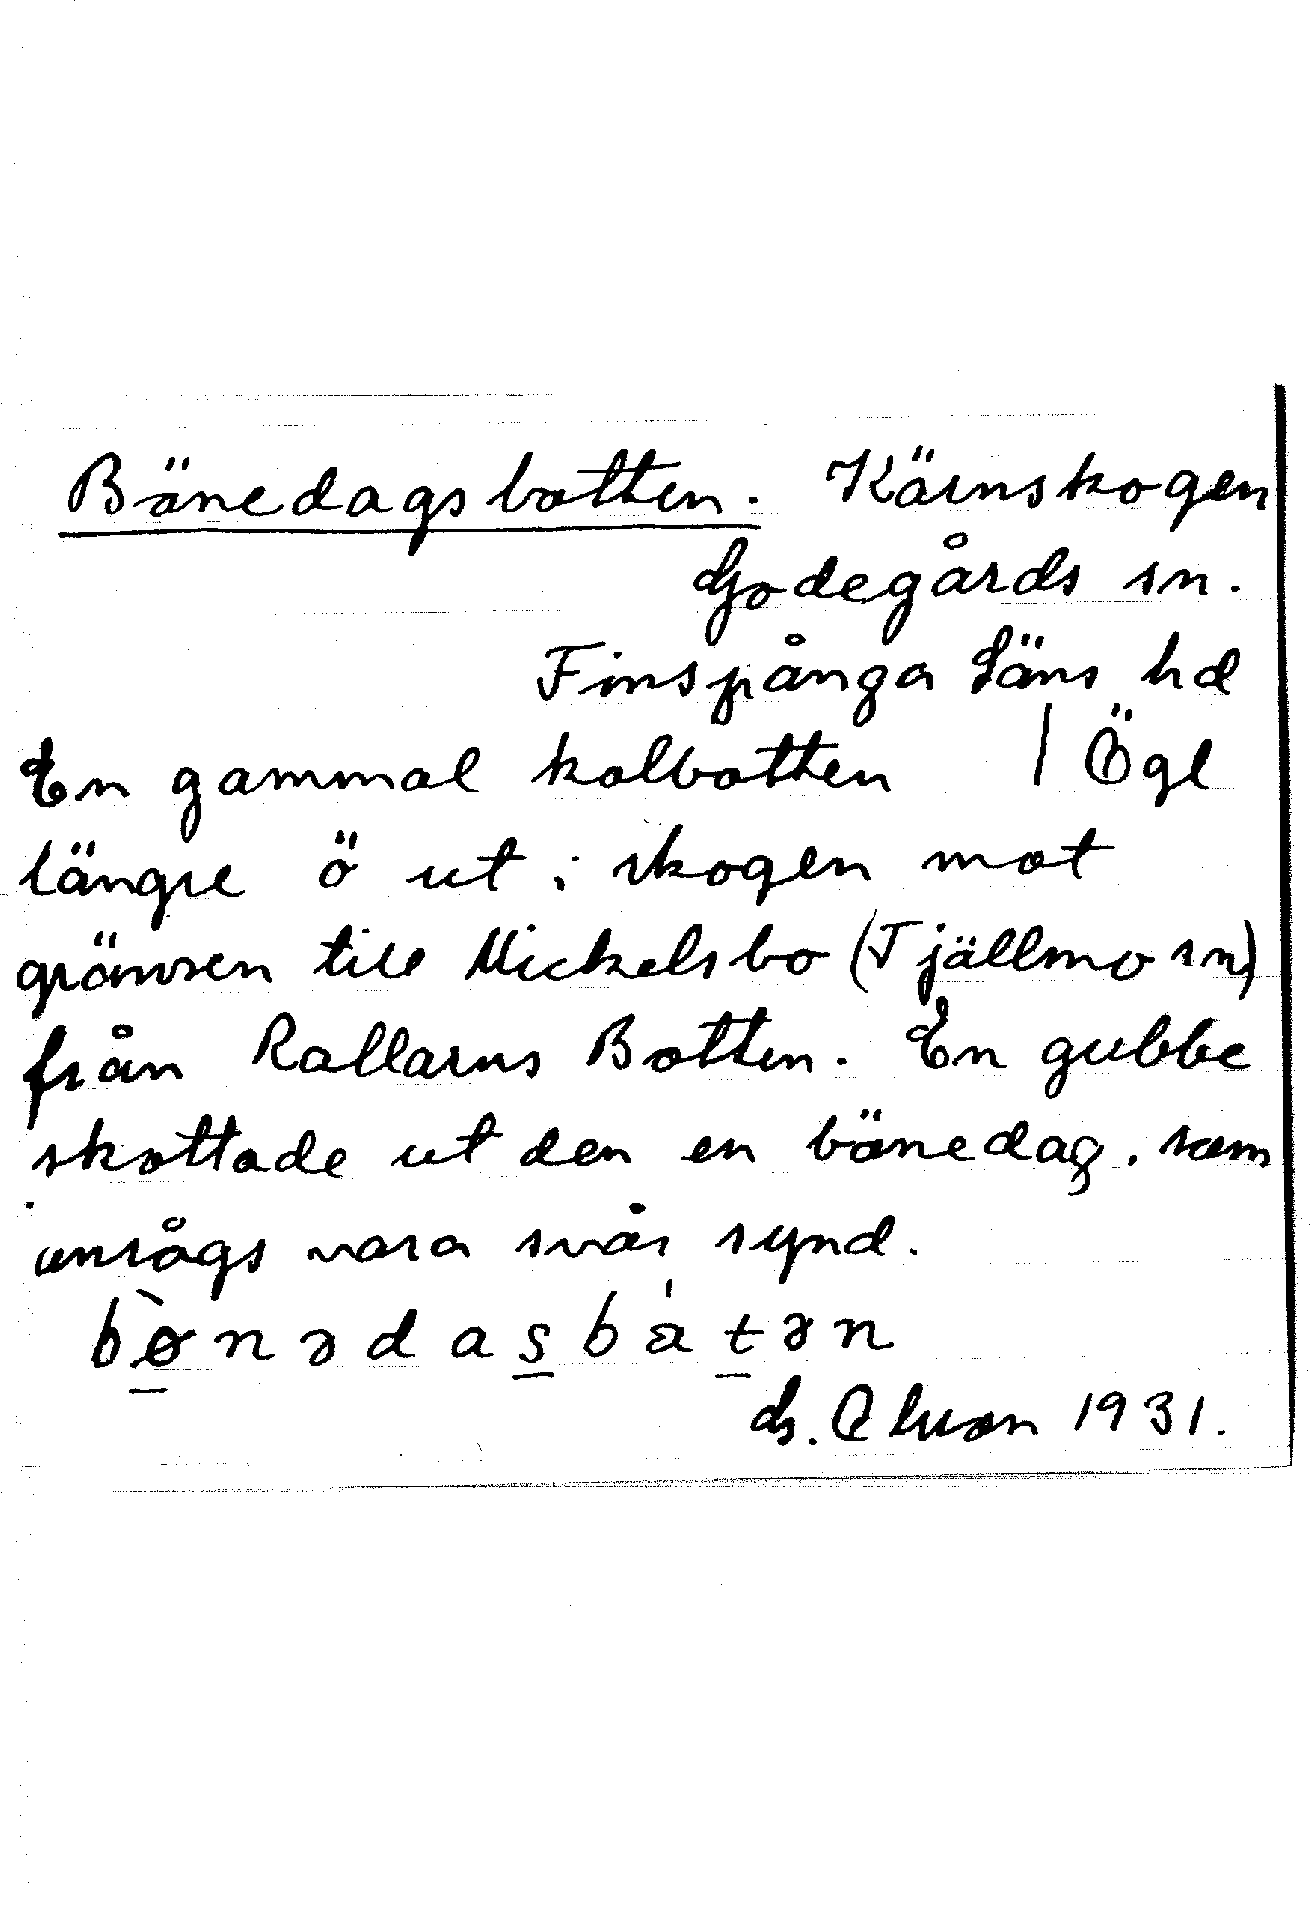 Bönedagsbotten. Kärnskogen
Godegårds sn.
Finspånga Läns hd
En gammal kolbotten | Ögl
längre ö ut i skogen mot
gränsen till Mickelsbo (Tjällmo sn)
från Rallarns Botten. En gubbe
skottade ut den en bönedag, som
ansågs vara svår synd.
bǿnədasbåtən
1931.